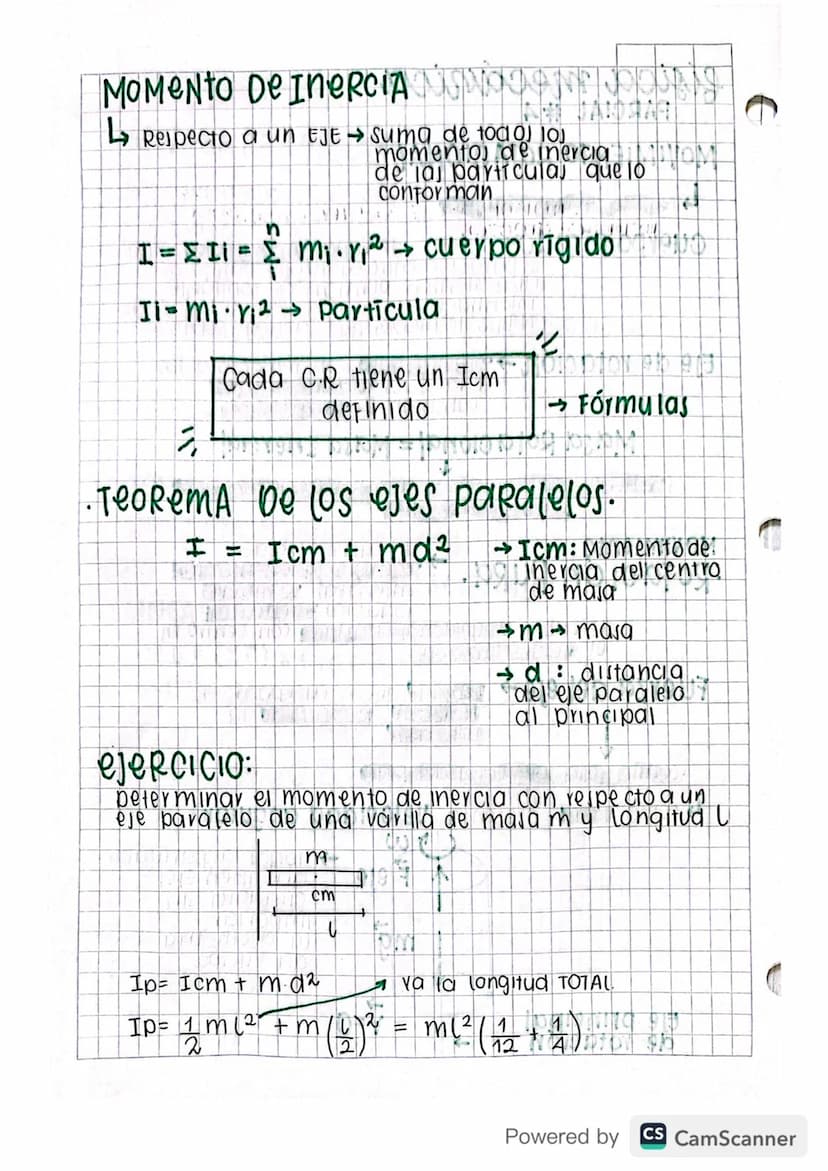 MOMENTO DE INERCIA
↳ Respecto a un EJE → suma de todos los
momentos de inercia
de las partículas que lo
conforman
I = Σ Ii = Σ mi · ri² → cuerpo rígido
n
1
Ii = mi · ri² → Partícula
Cada C.R tiene un Icm
definido
→ Fórmulas
. TEOREMA DE LOS EJES PARALELOS.
I = Icm + md² → Icm: Momento de
inercia del centro
de masa
→ m → masa
→ d : distancia
del eje paralelo
al principal
EJERCICIO:
Determinar el momento de inercia con respecto a un
eje paralelo de una varilla de masa m y longitud L
m
cm
L
Ip = Icm + m·d² → va la longitud TOTAL
Ip = 1/2 mL² + m (L/2)² = mL² (1/12 + 1/4)
Powered by CS CamScanner